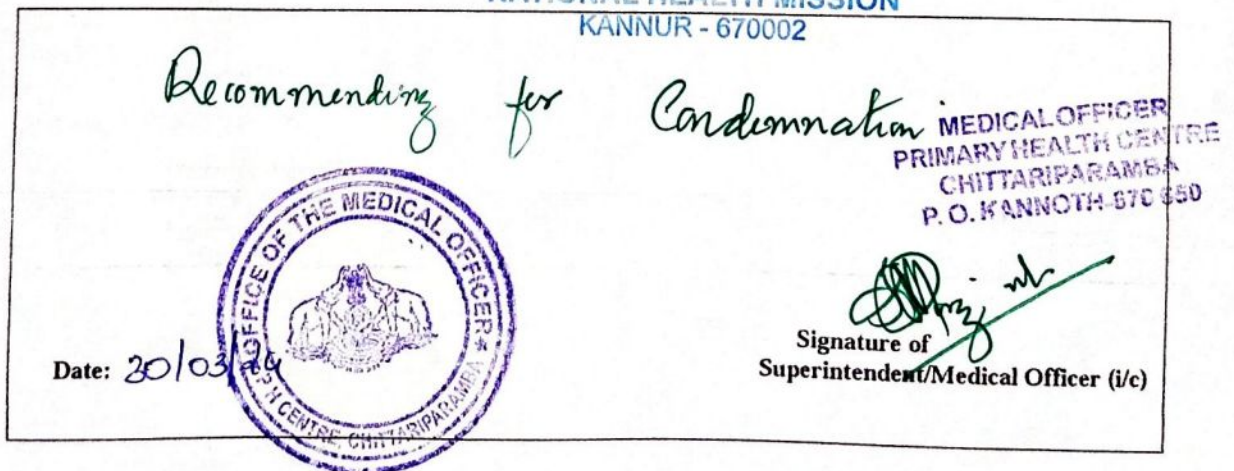 NATIONAL HEALTH MISSION
KANNUR - 670002
Recommending for Condemnation
MEDICAL OFFICER
PRIMARY HEALTH CENTRE
CHITTARIPARAMBA
P. O. KANNOTH-670 650
OFFICE OF THE MEDICAL OFFICER
P H CENTRE, CHITTARIPARAMBA
Date: 30/03/24
Signature of
Superintendent/Medical Officer (i/c)